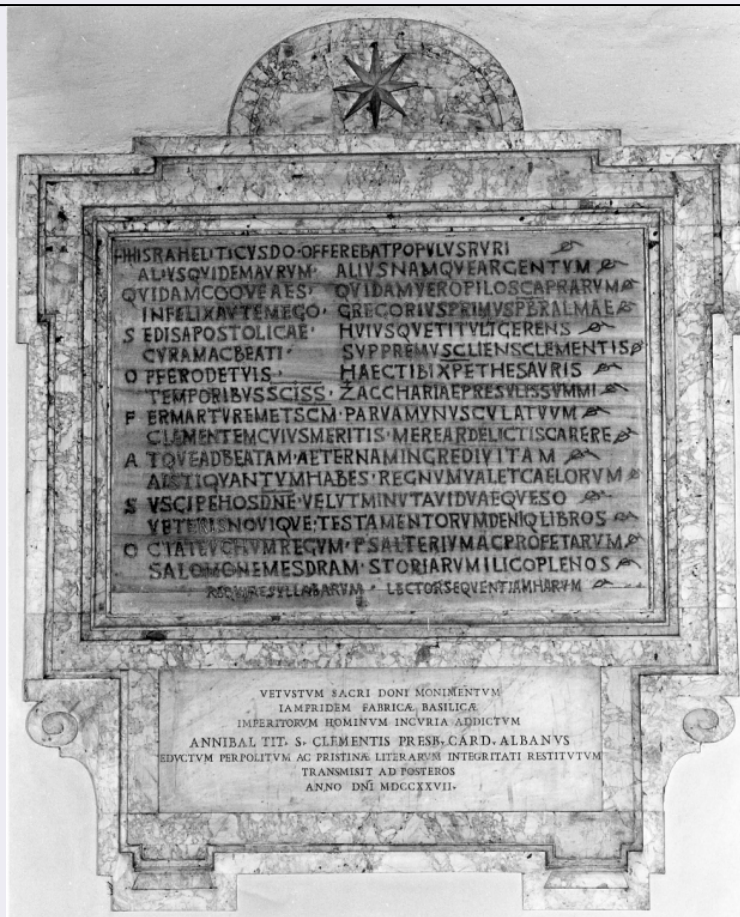 HHISRAHELITICVSDO·OFFEREBATPOPVLVSRVRI
ALIVSQVIDEMAVRVM· ALIVSNAMQVEARGENTVM
QVIDAMCOQVEAES· QVIDAMVEROPILOSCAPRARVM
INFELIXAVTEMEGO· GREGORIVSPRIMVSPERALMAE
S EDISAPOSTOLICAE· HVIVSQVETITVLIGERENS
CVRAMACBEATI· SVPPREMVSCLIENSCLEMENTIS
O FFERODETVIS· HAECTIBIXPETHESAVRIS
TEMPORIBVSSCISS· ZACCHARIAEPRESVLISSVMMI
P ERMARTVREMETSCM·PARVAMVNVSCVLATVVM
CLEMENTEMCVIVSMERITIS·MEREARDELICTISCARERE
A TQVEADBEATAM·AETERNAMINGREDIVITAM
AISTIQVANTVMHABES·REGNVMVALETCAELORVM
S VSCIPEHOSDNE·VELVTMINVTAVIDVAEQVESO
VETERISNOVIQVE·TESTAMENTORVMDENIQLIBROS
O CTATEVCHVMREGVM·PSALTERIVMACPROFETARVM
SALOMONEMESDRAM·STORIARVMILICOPLENOS
REQVIRESYLLABARVM· LECTORSEQVENTIAMHARVM
VETVSTVM SACRI DONI MONIMENTVM
IAMPRIDEM FABRICÆ BASILICÆ
IMPERITORVM HOMINVM INCVRIA ADDICTVM
ANNIBAL TIT. S. CLEMENTIS PRESB. CARD. ALBANVS
EDVCTVM PERPOLITVM AC PRISTINÆ LITERARVM INTEGRITATI RESTITVTVM
TRANSMISIT AD POSTEROS
ANNO DNI MDCCXXVII.